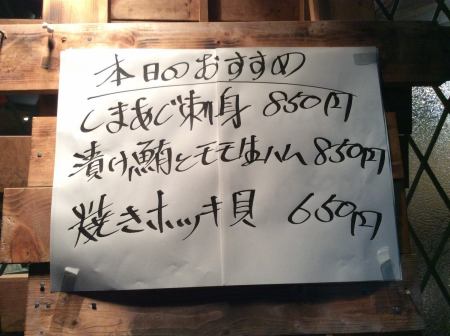 本日のおすすめ
しまあじ刺身 850円
漬け鮪とモモ生ハム 850円
焼きホッキ貝 650円